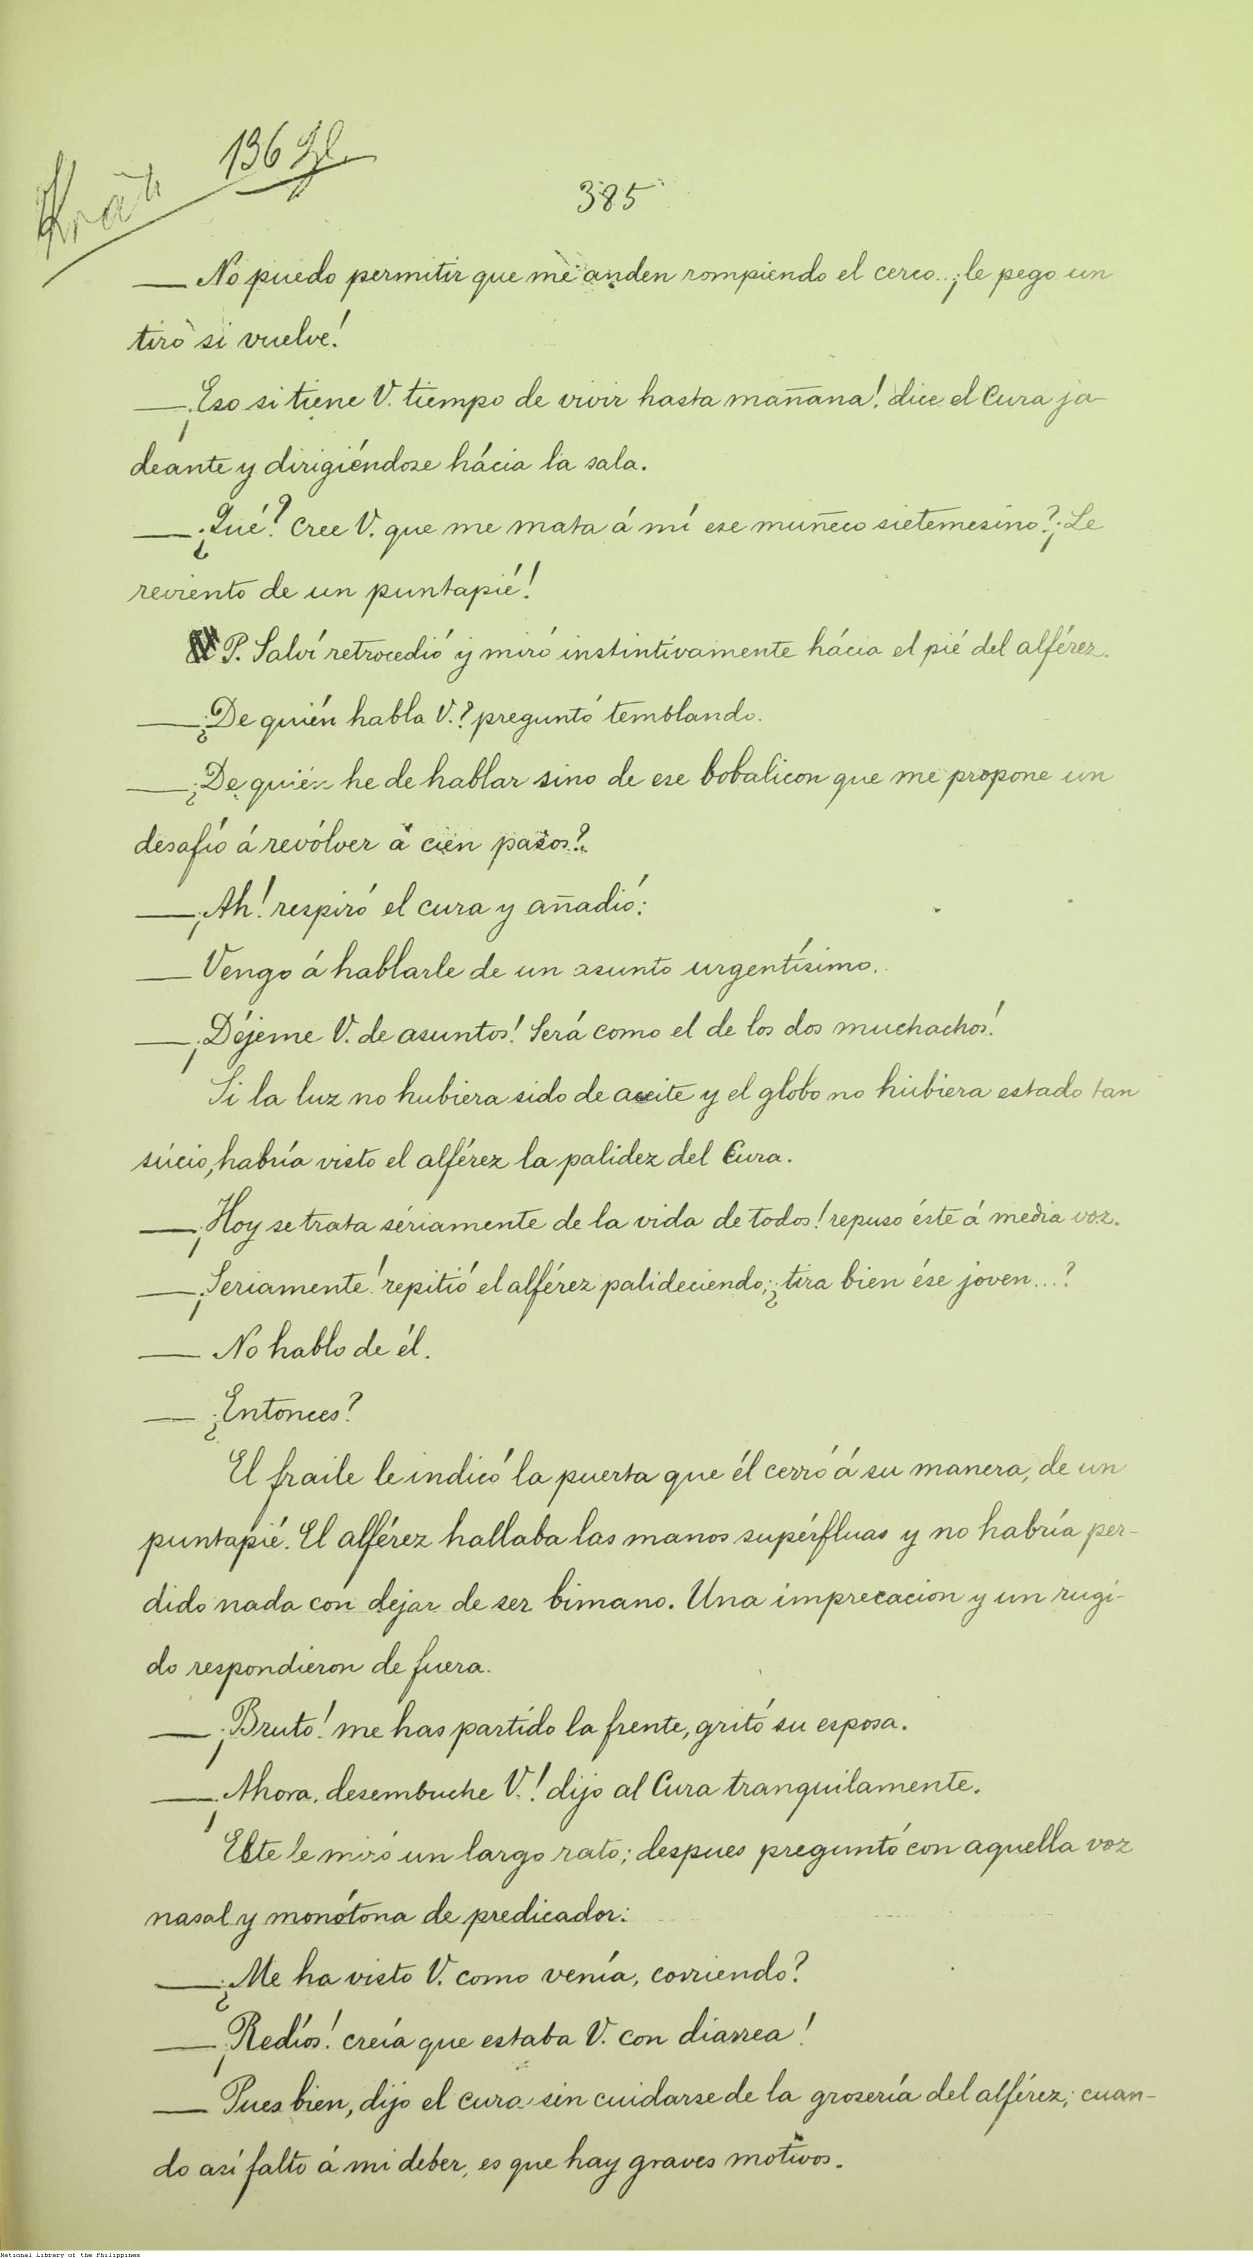 136 Gl.
385
— No puedo permitir que me anden rompiendo el cerco... ¡le pego un
tiro si vuelve!
— ¡Eso si tiene V. tiempo de vivir hasta mañana! dice el Cura ja-
deante y dirigiéndose hácia la sala.
— ¿Qué? Cree V. que me mata á mí ese muñeco sietemesino? ¡Le
reviento de un puntapié!
P. Salví retrocedió y miró instintivamente hácia el pié del alférez.
— ¿De quién habla V.? preguntó temblando.
— ¿De quién he de hablar sino de ese bobalicon que me propone un
desafío á revólver á cien pasos?
— ¡Ah! respiró el cura y añadió:
— Vengo á hablarle de un asunto urgentísimo.
— ¡Déjeme V. de asuntos! Será como el de los dos muchachos!
Si la luz no hubiera sido de aceite y el globo no hubiera estado tan
súcio, habría visto el alférez la palidez del Cura.
— ¡Hoy se trata sériamente de la vida de todos! repuso éste á media voz.
— ¡Seriamente! repitió el alférez palideciendo; ¿tira bien ése joven...?
— No hablo de él.
— ¿Entonces?
El fraile le indicó la puerta que él cerró á su manera, de un
puntapié. El alférez hallaba las manos supérfluas y no habría per-
dido nada con dejar de ser bimano. Una imprecacion y un rugi-
do respondieron de fuera.
— ¡Bruto! me has partido la frente, gritó su esposa.
— ¡Ahora, desembuche V.! dijo al Cura tranquilamente.
Este le miró un largo rato; despues preguntó con aquella voz
nasal y monótona de predicador:
— ¿Me ha visto V. como venía, corriendo?
— ¡Redíos! creía que estaba V. con diarrea!
— Pues bien, dijo el cura sin cuidarse de la grosería del alférez; cuan-
do así falto á mi deber, es que hay graves motivos.
National Library of the Philippines